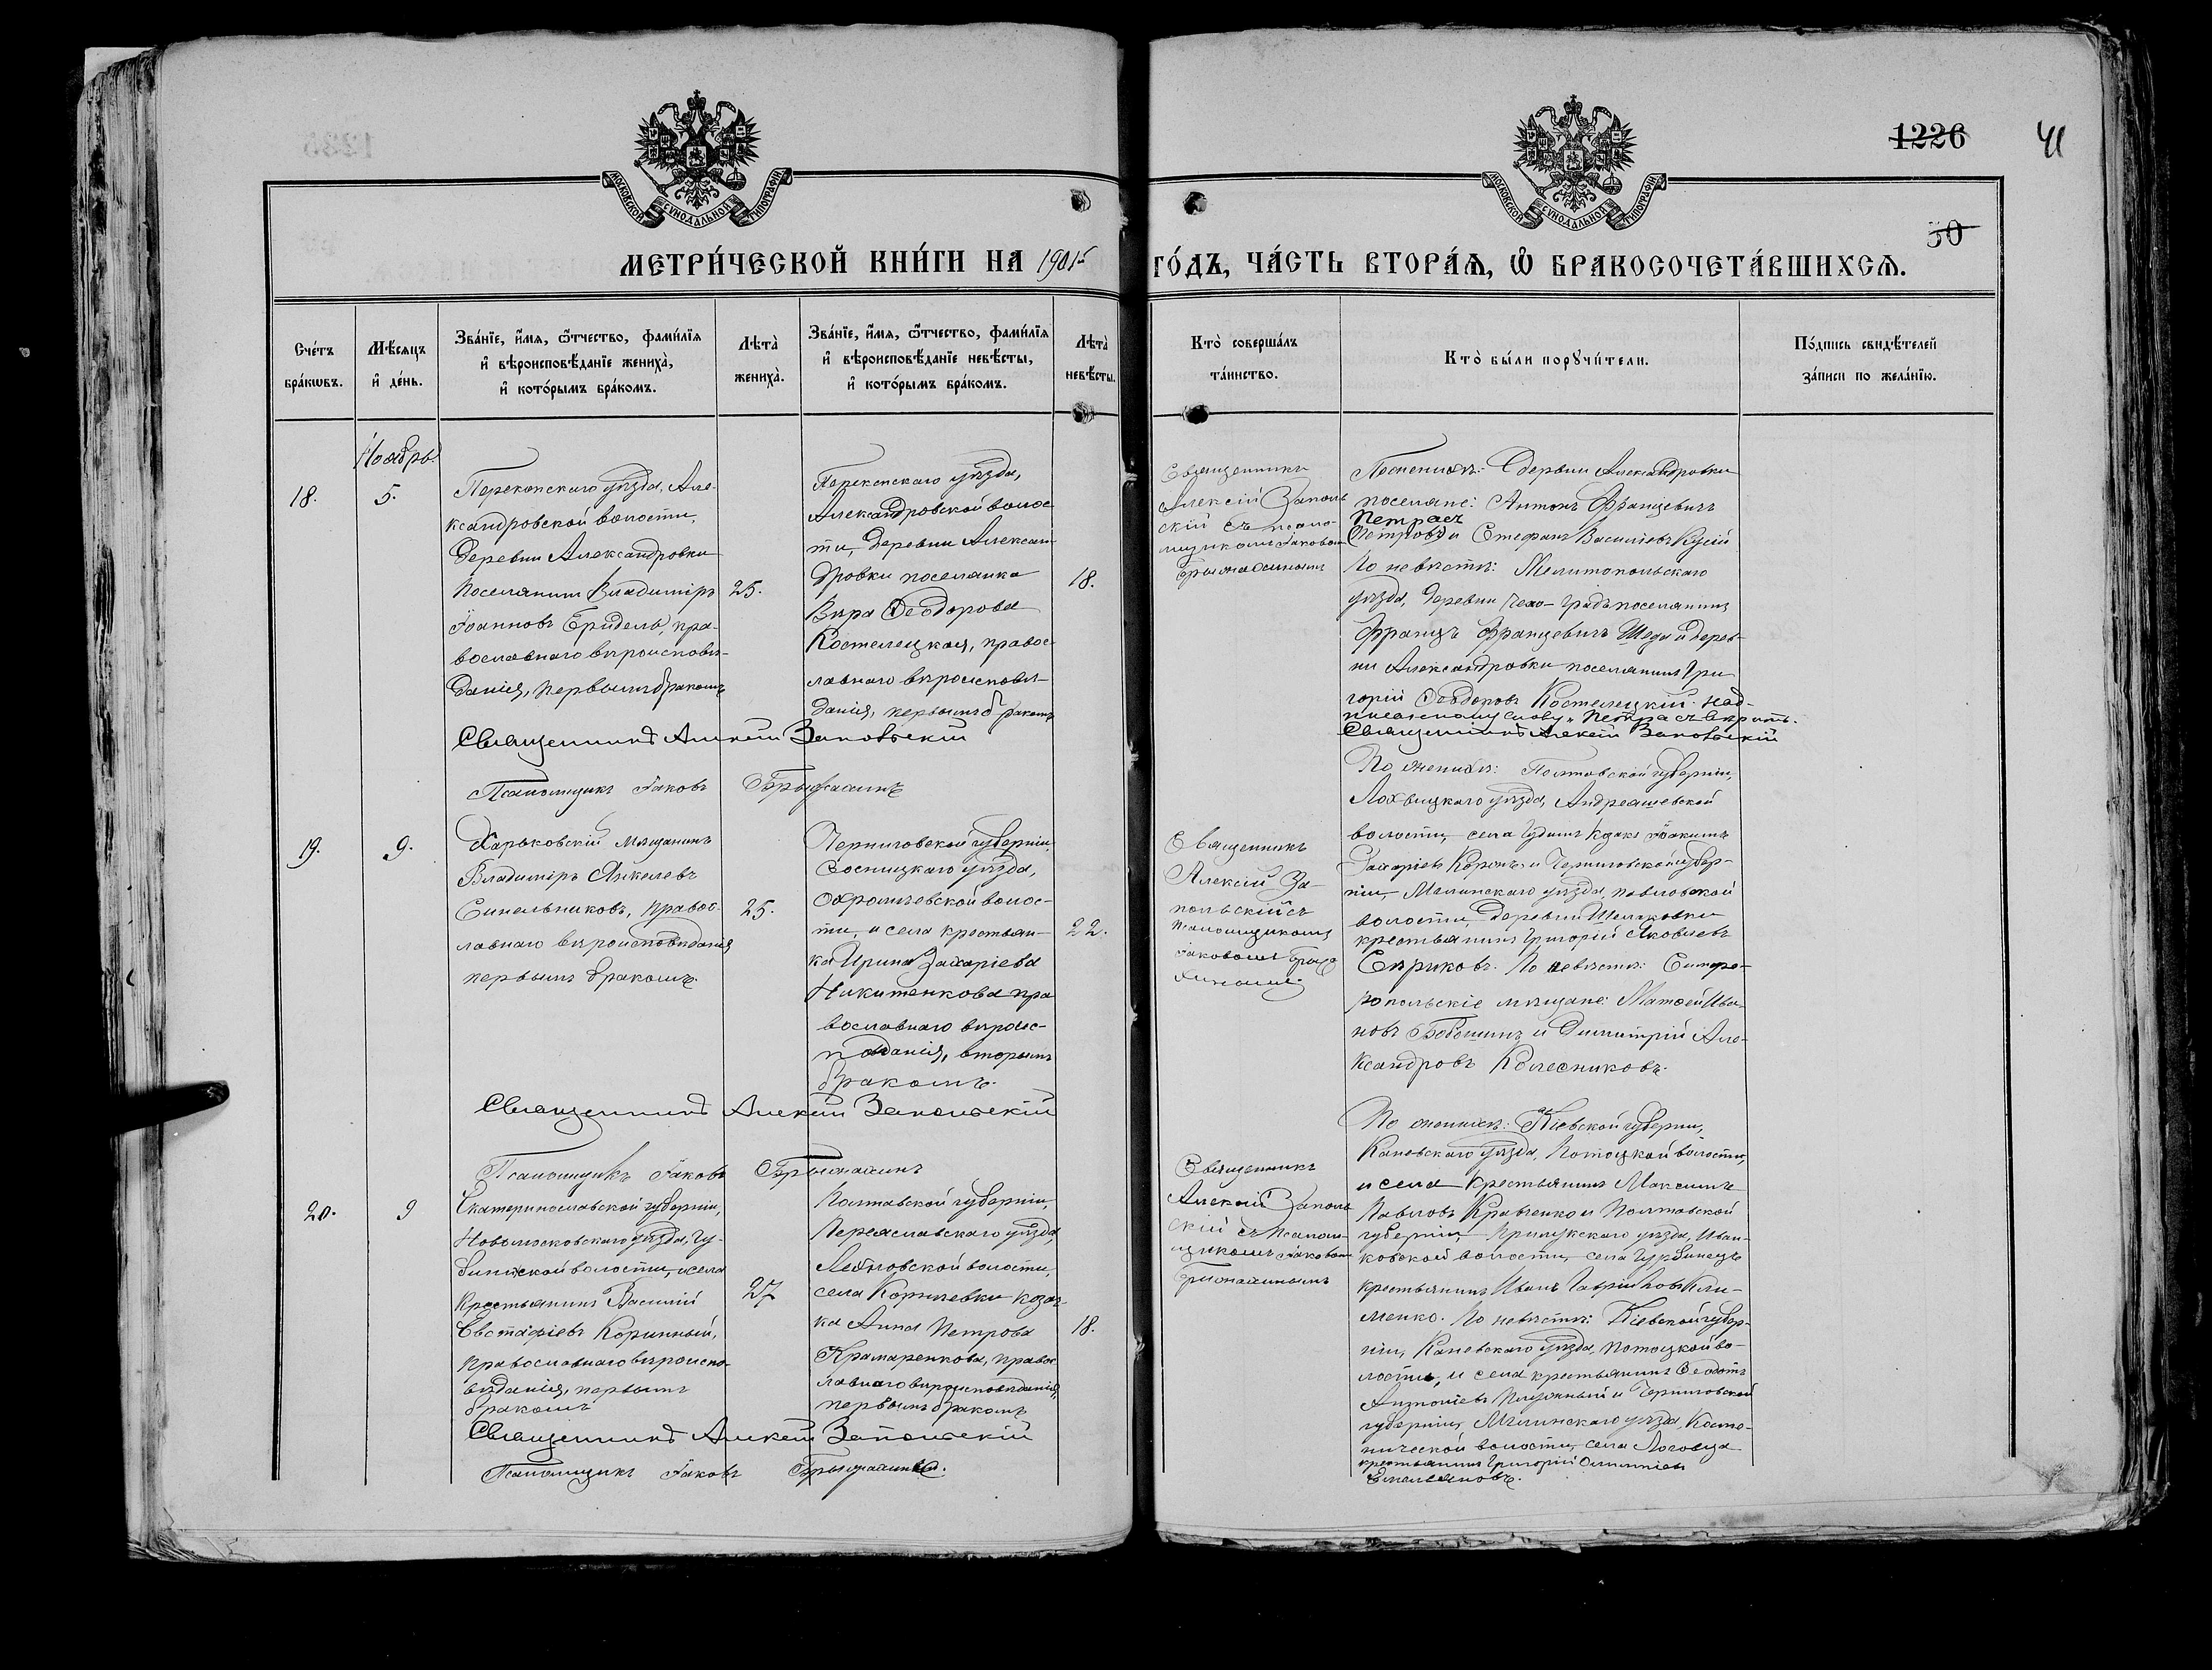 1226
41
МОСКОВСКОЙ СѴНОДАЛЬНОЙ ТИПОГРАФІИ
МОСКОВСКОЙ СѴНОДАЛЬНОЙ ТИПОГРАФІИ
50
МЕТРИ́ЧЕСКОЙ КНИ́ГИ НА 1901 ГО́ДЪ, ЧА́СТЬ ВТОРА́Ѧ, Ѡ҆ БРАКОСОЧЕТА́ВШИХСѦ.
Сче́тъ
бра́кѡвъ.
Мѣ́сѧцъ
и҆ де́нь.
Зва́нїе, и҆́мѧ, ѻ҆́тчество, фами́лїѧ
и҆ вѣроисповѣ́данїе жениха̀,
и҆ кото́рымъ бра́комъ.
Лѣта̀
жениха̀.
Зва́нїе, и҆́мѧ, ѻ҆́тчество, фами́лїѧ
и҆ вѣроисповѣ́данїе невѣ́сты,
и҆ кото́рымъ бра́комъ.
Лѣта̀
невѣ́сты.
Кто̀ соверша́лъ
та́инство.
Кто̀ бы́ли порꙋчи́тели.
По́дпись свидѣ́телей
за́писи по жела́нїю.
Ноябрь
18.
5.
Перекопскаго уѣзда, Але-
ксандровской волости,
деревни Александровки
поселянинъ Владиміръ
Іоанновъ, пра-
вославнаго вѣроисповѣ-
данія, первымъ бракомъ
25.
Перекопскаго уѣзда,
Александровской волос-
ти, деревни Алексан-
дровки поселянка
Вѣра Ѳеодорова
Костелецкая, правос-
лавнаго вѣроисповѣ-
данія, первымъ бракомъ
18.
Священникъ
Алексій Заполь
скій съ псало-
мщикомъ Іаковомъ
По женихѣ: деревни Александровки
поселяне: Антонъ Францевичъ
Петрасъ
и Стефанъ Васильевъ
По невѣстѣ: Мелитопольскаго
уѣзда, деревни Чехо-градъ поселянинъ
Францъ Францевичъ и дерев-
ни Александровки поселянинъ Гри
горій Ѳеодоровъ Костелецкій. Над-
писанному слову „Петрасъ" вѣрить.
Священникъ Алексій Запольскій
Священникъ Алексій Запольскій
Псаломщикъ Іаковъ
19.
9.
Харьковскій мѣщанинъ
Владиміръ
Синельниковъ, правос-
лавнаго вѣроисповѣданія
первымъ бракомъ.
25.
Черниговской губерніи,
Сосницкаго уѣзда,
волос-
ти, и села крестьян-
ка Ирина Захаріева
Никитенкова пра
вославнаго вѣроис-
повѣданія, вторымъ
бракомъ.
22.
Священникъ
Алексій За-
польскій съ
псаломщикомъ
Іаковомъ
По женихѣ: Полтавской губерніи,
Лохвицкаго уѣзда, Андреяшевской
волости, села козакъ Іоакимъ
и Черниговской губер-
ніи, Мглинскаго уѣзда, Павловской
волости, деревни
крестьянинъ Григорій Яковлевъ
По невѣстѣ: Симфе-
ропольскіе мѣщане: Матѳей Ива
новъ и Димитрій Але-
ксандровъ Колесниковъ.
Священникъ Алексій Запольскій
Псаломщикъ Іаковъ
20.
9
Екатеринославской губерніи,
Новомосковскаго уѣзда, Гу-
бинской волости, и села
крестьянинъ Василій
Евстафіевъ Коринный,
православнаго вѣроиспо-
вѣданія, первымъ
бракомъ
27
Полтавской губерніи,
Переяславскаго уѣзда,
волости,
села козач-
ка Анна Петрова
Крамаренкова, правос-
лавнаго вѣроисповѣданія,
первымъ бракомъ
18.
Священникъ
Алексій Заполь
скій съ псалом-
щикомъ Іаковомъ
По женихѣ: Кіевской губерніи,
Каневскаго уѣзда, Потоцкой волости,
и села крестьянинъ Максимъ
Павловъ Кравченко и Полтавской
губерніи, Прилукскаго уѣзда, Иван-
ковской волости, села
крестьянинъ Иванъ Гавріиловъ Кли-
менко. По невѣстѣ: Кіевской губер-
ніи, Каневскаго уѣзда, Потоцкой во-
лости, и села крестьянинъ Ѳеодотъ
и Черниговской
губерніи, Мглинскаго уѣзда, Косте-
ничской волости, села
крестьянинъ Григорій
Емельяновъ.
Священникъ Алексій Запольскій
Псаломщикъ Іаковъ